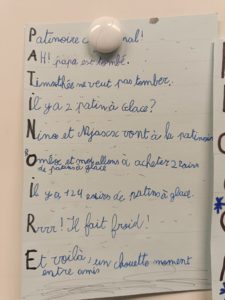 Patinoire c nal!
Ah! papa est tombé.
Timothée ne veut pas tomber.
Il y a 2 patins à glace?
Nino et vont à la patinoire
O et allons à acheter 2
de patins à glace
Il y a 124 de patins à glace.
Rrrr! Il fait froid!
Et voilà, un chouette moment
entre amis